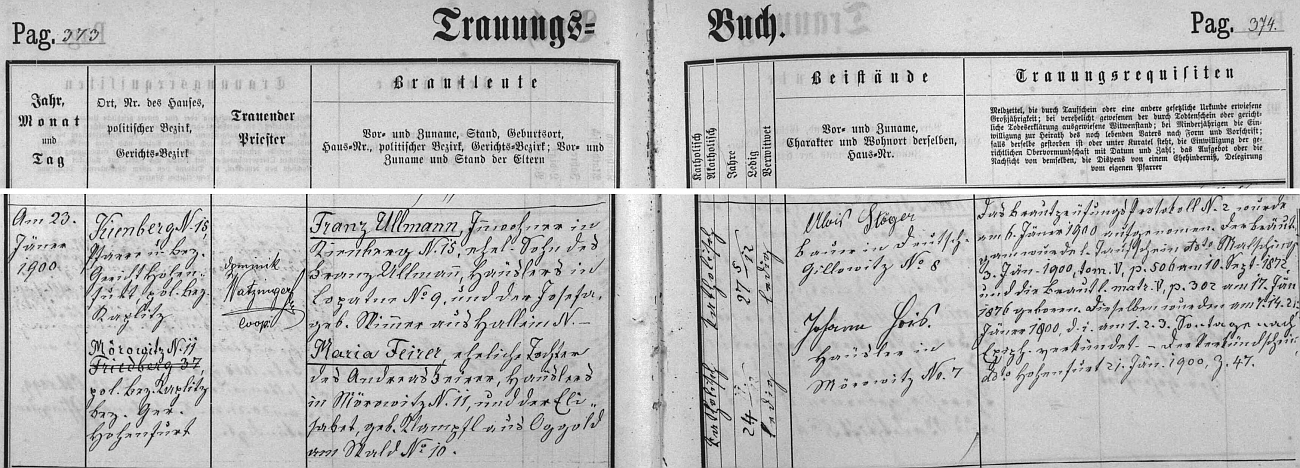 Pag. 373
Trauungs=
Buch.
Pag. 374.
Jahr,
Monat
und
Tag
Ort, Nr. des Hauses,
politischer Bezirk,
Gerichts-Bezirk
Trauender
Priester
Brautleute
Vor- und Zuname, Stand, Geburtsort,
Haus-Nr., politischer Bezirk, Gerichts-Bezirk; Vor- und
Zuname und Stand der Eltern
Katholisch
Akatholisch
Jahre
Ledig
Verwitwet
Beistände
Vor- und Zuname,
Charakter und Wohnort derselben,
Haus-Nr.
Trauungsrequisiten
Meldzettel, die durch Taufschein oder eine andere gesetzliche Urkunde erwiesene
Großjährigkeit; bei verehelicht gewesenen der durch Todtenschein oder gericht-
liche Todeserklärung ausgewiesene Witwenstand; bei Minderjährigen die Ein-
willigung zur Heirath des noch lebenden Vaters nach Form und Vorschrift;
falls derselbe gestorben ist oder unter Kuratel steht, die Einwilligung der ge-
richtlichen Obervormundschaft mit Datum und Zahl; das Aufgebot oder die
Nachsicht von demselben, die Dispens von einem Ehehinderniß, Delegirung
vom eigenen Pfarrer
Am 23.
Jäner
1900.
Kienberg N. 15,
Pfarre u. bez.
Gericht Hohen-
furt, pol. bez.
Kaplitz
Mörowitz N. 11
Friedberg 37,
pol. bez. Kaplitz
bez. Ger.
Hohenfurt
Dominik
Watzinger
Coop.
Franz Ullmann, Inwohner in
Kienberg N. 15, ehel. Sohn des
Franz Ullmann, Häuslers in
Lopatne No 9, und der Josefa,
geb. Skimmer aus Hallein N. –
Maria Feirer, eheliche Tochter
des Andreas Feirer, Häuslers
in Mörowitz N. 11, und der Eli-
sabet, geb. Klampfl aus Oggold
am Wald No 10.
katholisch
27 5/12
ledig
katholisch
24
ledig
Alois Stöger
Bauer in Deutsch-
Gillowitz No 8
Johann
Häusler in
Mörowitz No. 7
Das Brautprüfungs Protokoll N. 2 wurde
am 6. Jäner 1900 aufgenomen. Der Bräuti-
gam wurde l. Taufschein ddto Malsching
3. Jän. 1900, tom. V, p. 506 am 10. Sept. 1872
und die Braut l. matr. V, p. 302 am 17. Jän
1876 geboren. Dieselben wurden am 7. 14. 21.
Jäner 1900, d. i. am 1. 2. 3. Sontage nach
Epiph. verkündet – Der Verkündschein
ddto Hohenfurt 21. Jän. 1900, Z. 47.